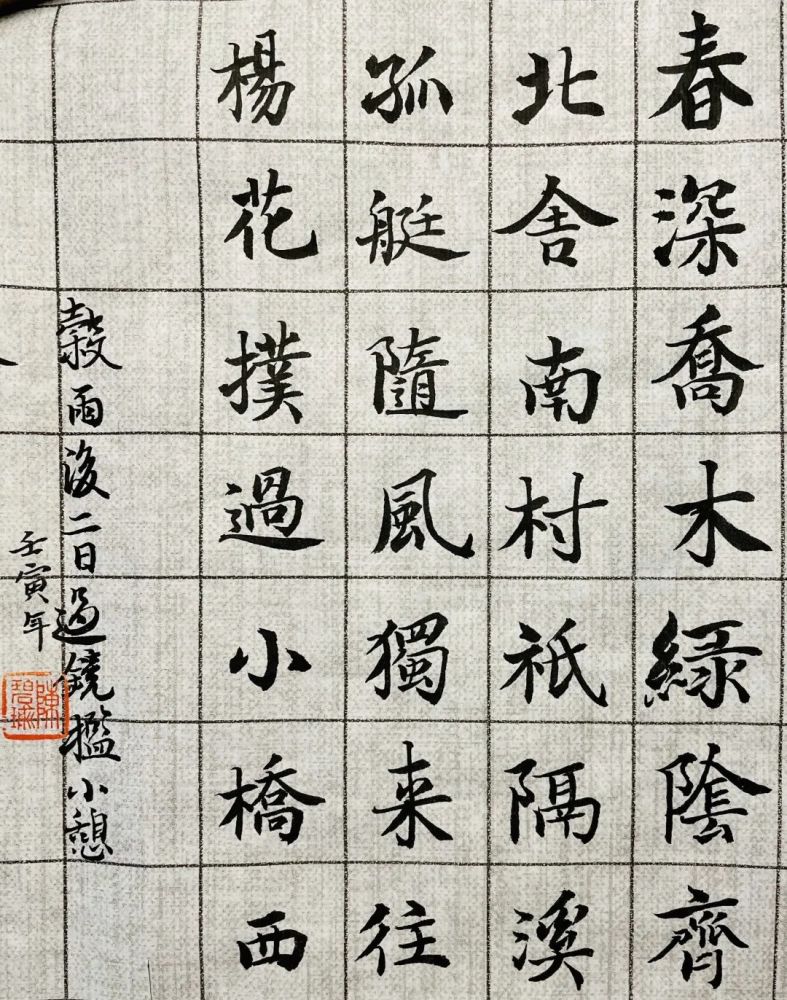 春深喬木綠陰齊
北舍南村祇隔溪
孤艇隨風獨来往
楊花撲過小橋西
穀雨後二日過鏡檻小憩
壬寅年
陳碧瑜